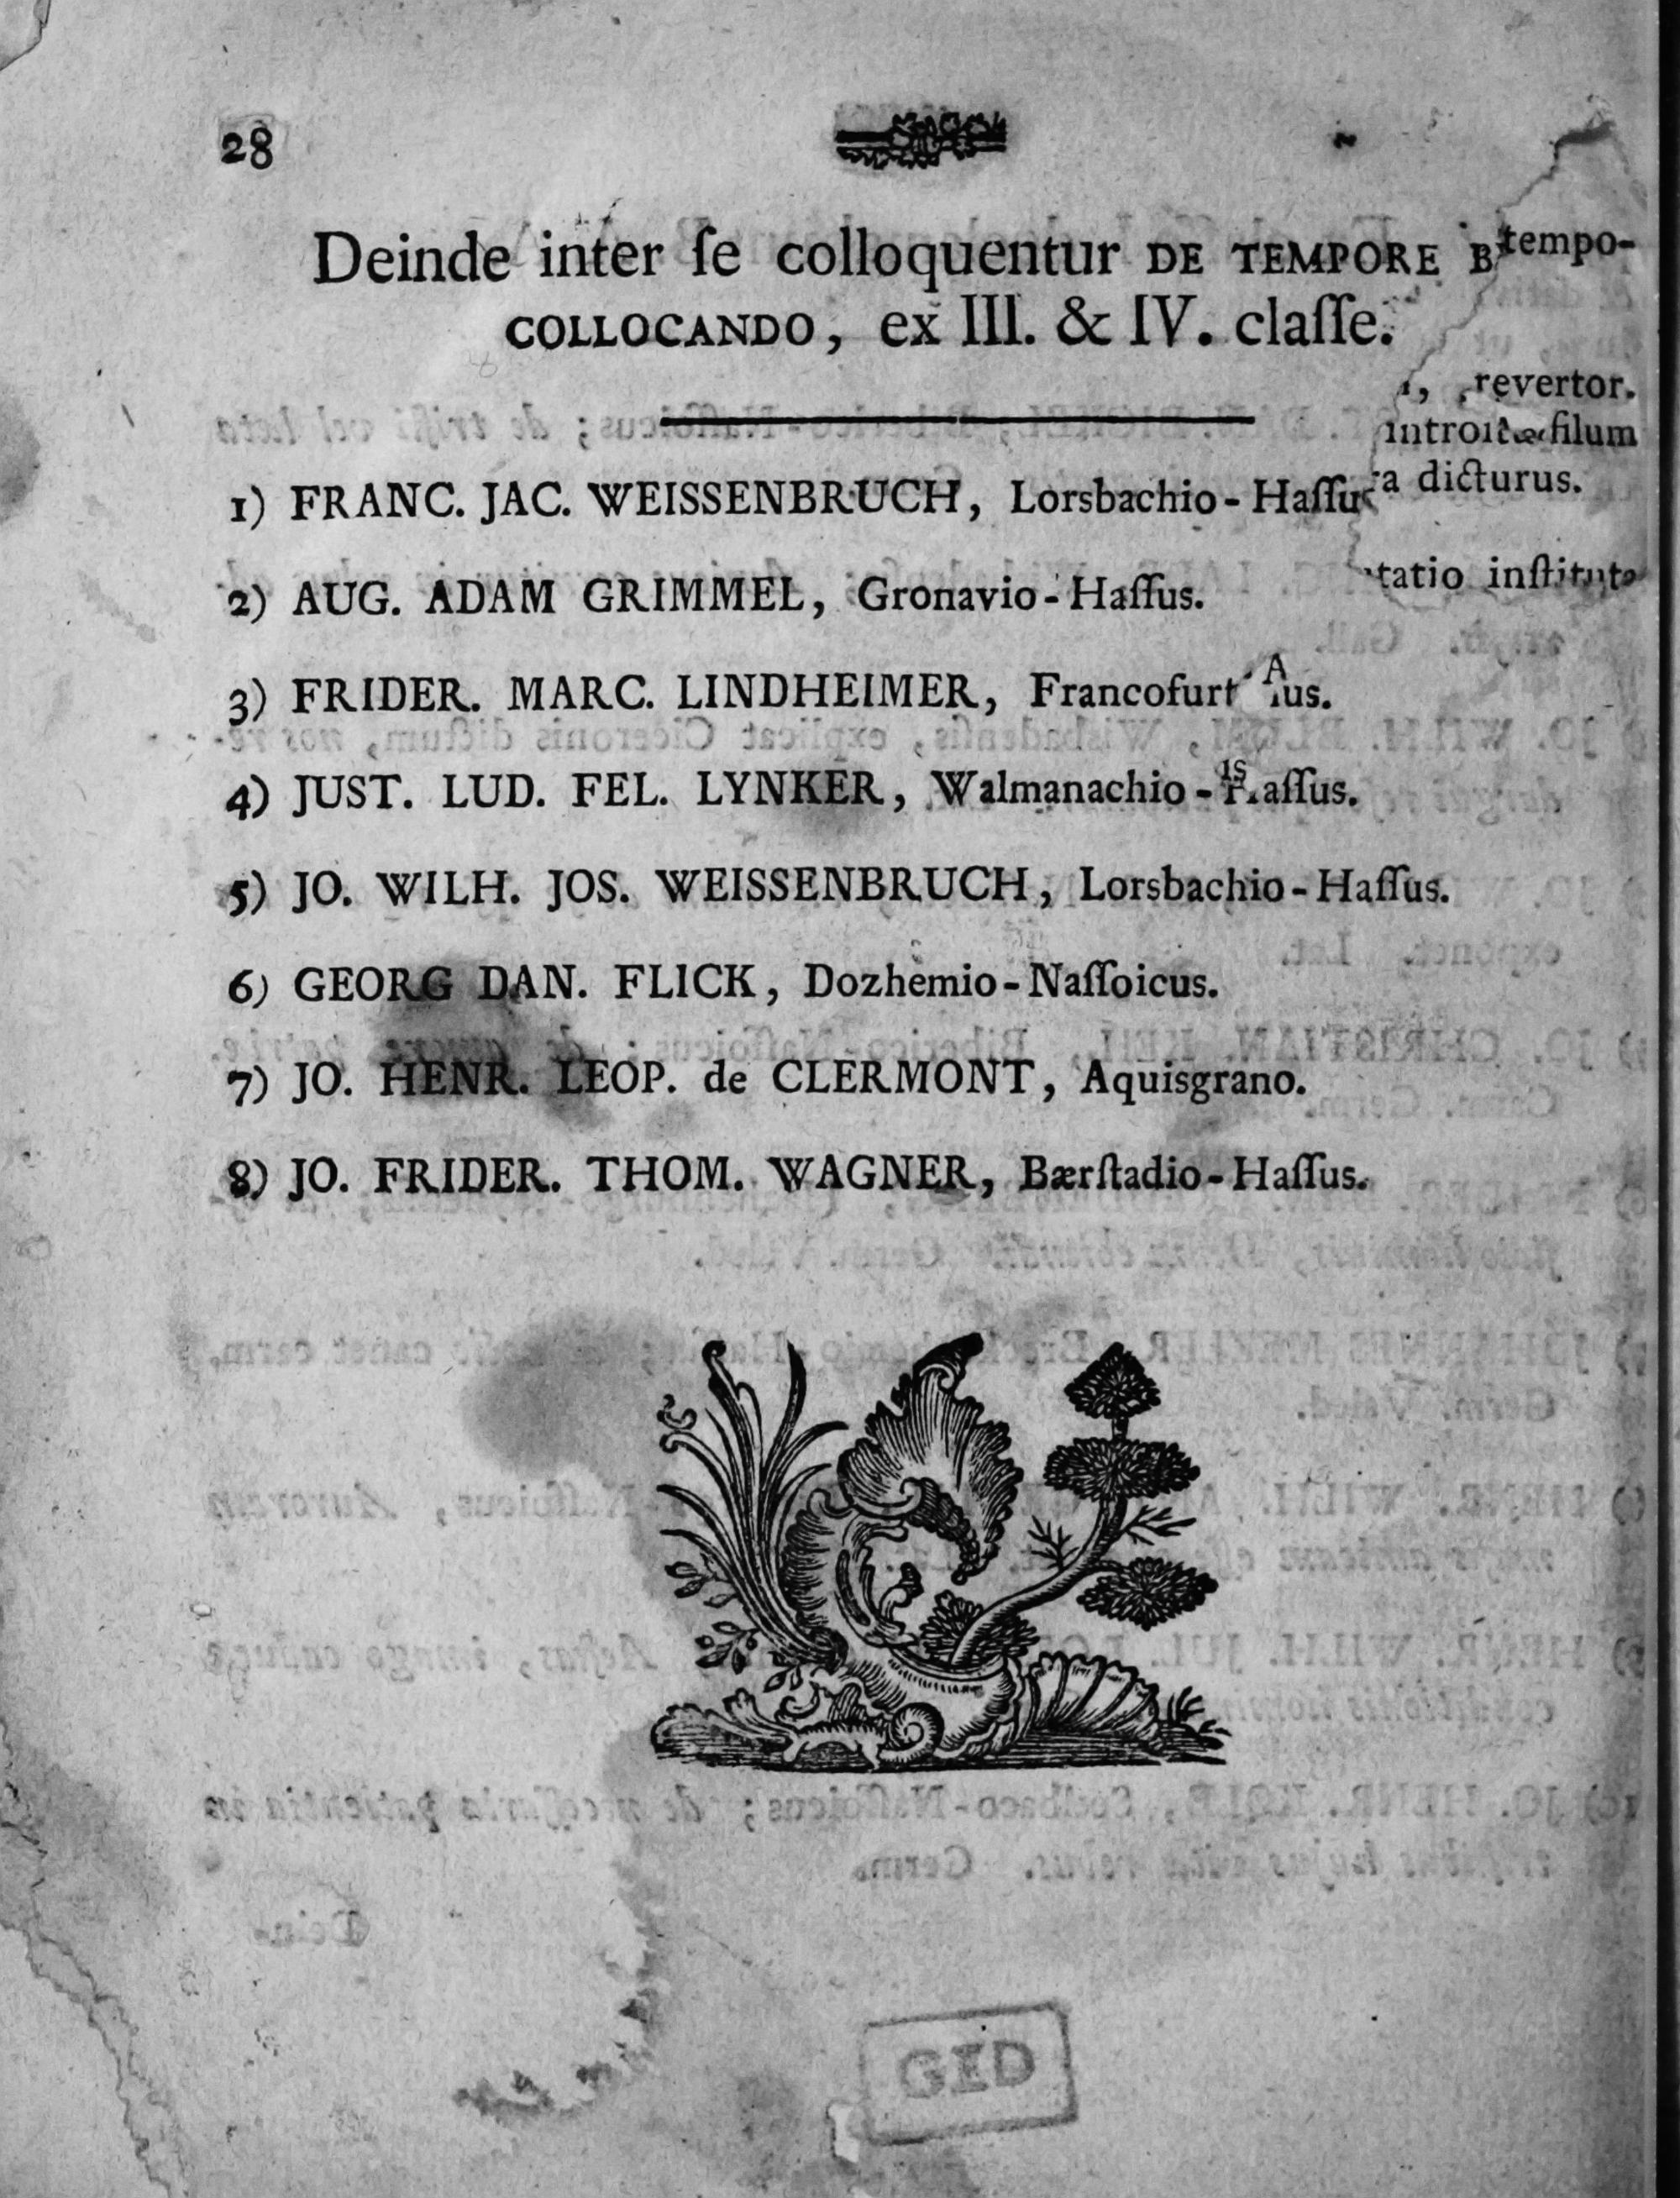 28
Deinde inter ſe colloquentur DE TEMPORE
COLLOCANDO, ex III. & IV. claſſe.
tempo-
revertor.
filum
dicturus.
1) FRANC. JAC. WEISSENBRUCH, Lorsbachio-Haſſus
2) AUG. ADAM GRIMMEL, Gronavio-Haſſus.
3) FRIDER. MARC. LINDHEIMER,
4) JUST. LUD. FEL. LYNKER, Walmanachio-Haſſus.
5) JO. WILH. JOS. WEISSENBRUCH, Lorsbachio-Haſſus.
6) GEORG DAN. FLICK, Dozhemio-Naſſoicus.
7) JO. HENR. LEOP. de CLERMONT, Aquisgrano.
8) JO. FRIDER. THOM. WAGNER, Bærſtadio-Haſſus.
GID